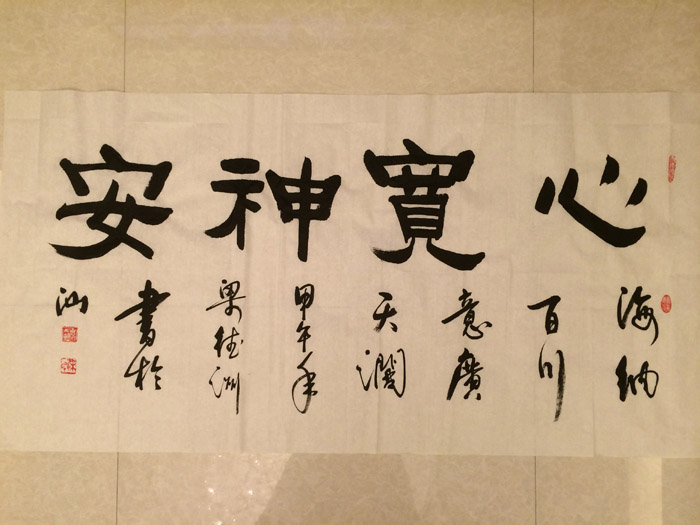 心寬神安
海納
百川
意廣
天濶
甲午年
梁桂洲
書於
汕